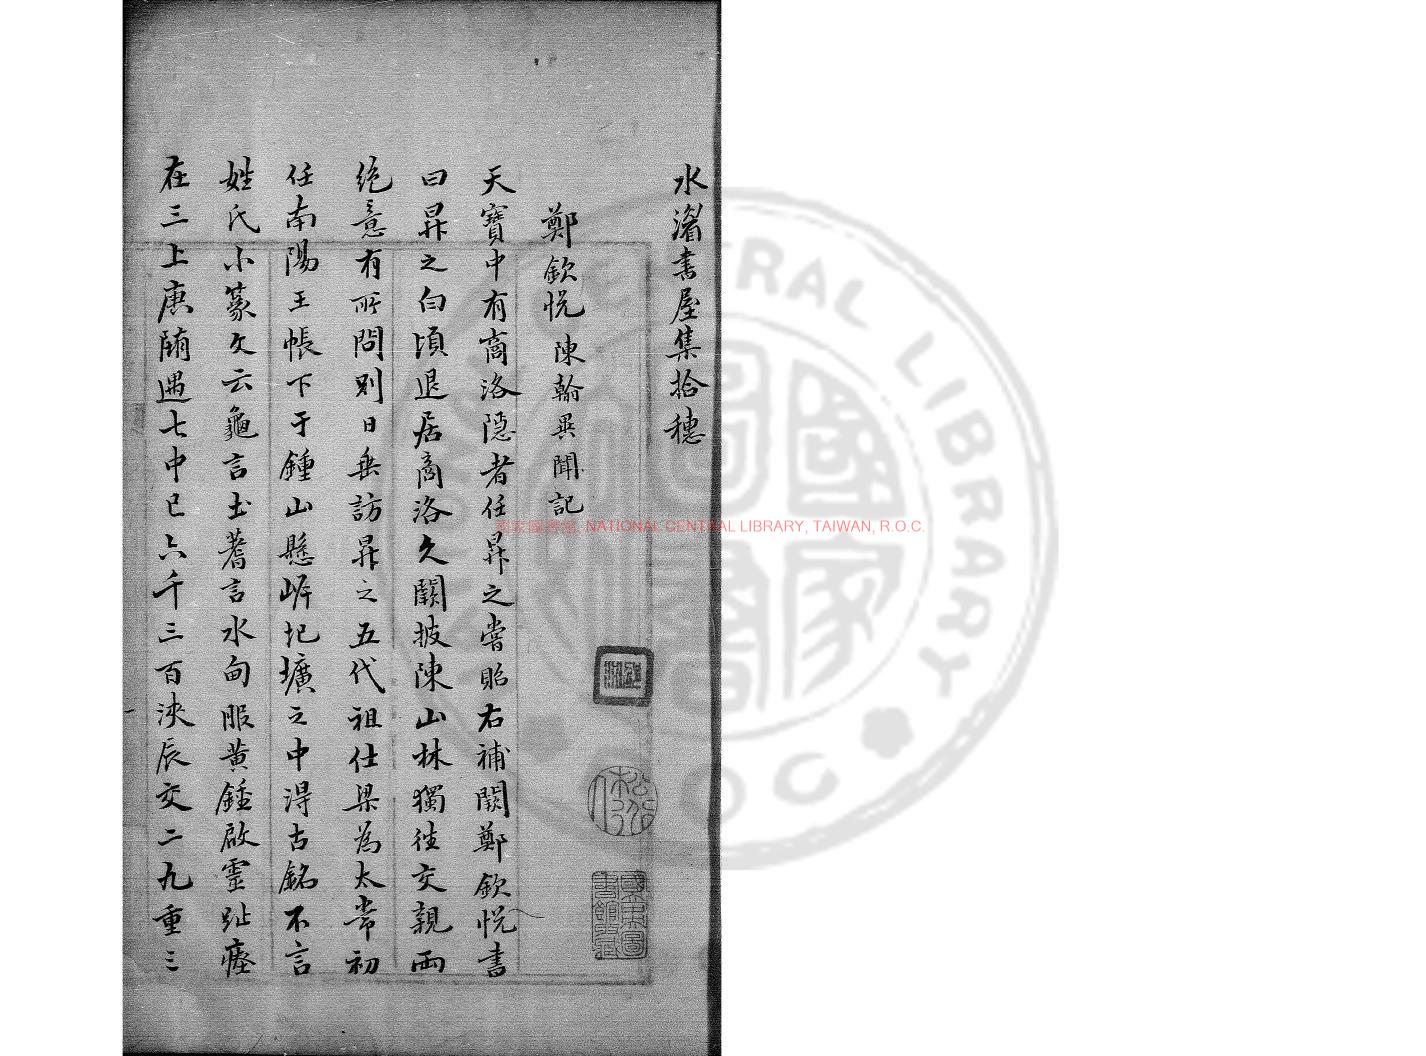 水濳書屋集拾穗
鄭欽悦 陳翰異聞記
天寶中有商洛隱者任昇之嘗貽右補闕鄭欽悦書
曰昇之白頃退居商洛久闕披陳山林獨往交親兩
絶意有所問别日垂訪昇之五代祖仕梁為太常初
任南陽王帳下于鍾山懸岸圯壙之中得古銘不言
姓氏小篆文云龜言土蓍言水甸服黄鍾啟靈趾瘞
在三上庚隋遇七中巳六千三百浹辰交二九重三
國家圖書館 NATIONAL CENTRAL LIBRARY, TAIWAN, R.O.C.
國家圖書
CENTRAL LIBRARY
ROC
國家圖書館收藏